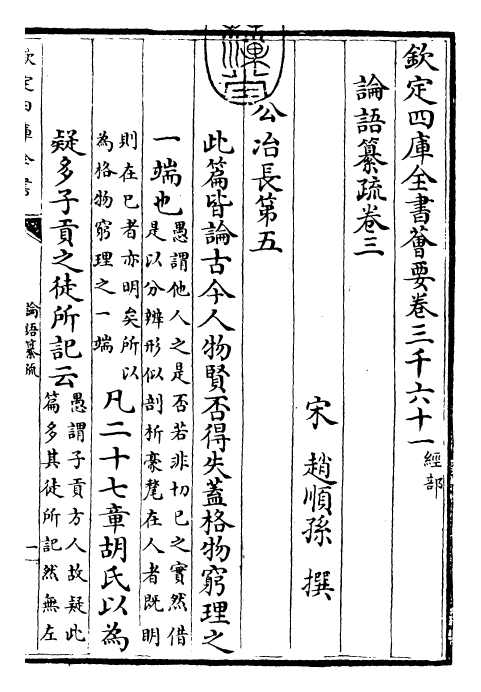 欽定四庫全書薈要卷三千六十一 經部
論語纂疏卷三
宋 趙順孫 撰
公冶長第五
此篇皆論古今人物賢否得失蓋格物窮理之
一端也
愚謂他人之是否若非切己之實然借
是以分辨形似剖析豪氂在人者既明
則在已者亦明矣所以
為格物窮理之一端
凡二十七章胡氏以為
疑多子貢之徒所記云
愚謂子貢方人故疑此
篇多其徒所記然無左
欽定四庫全書
論語纂疏
一